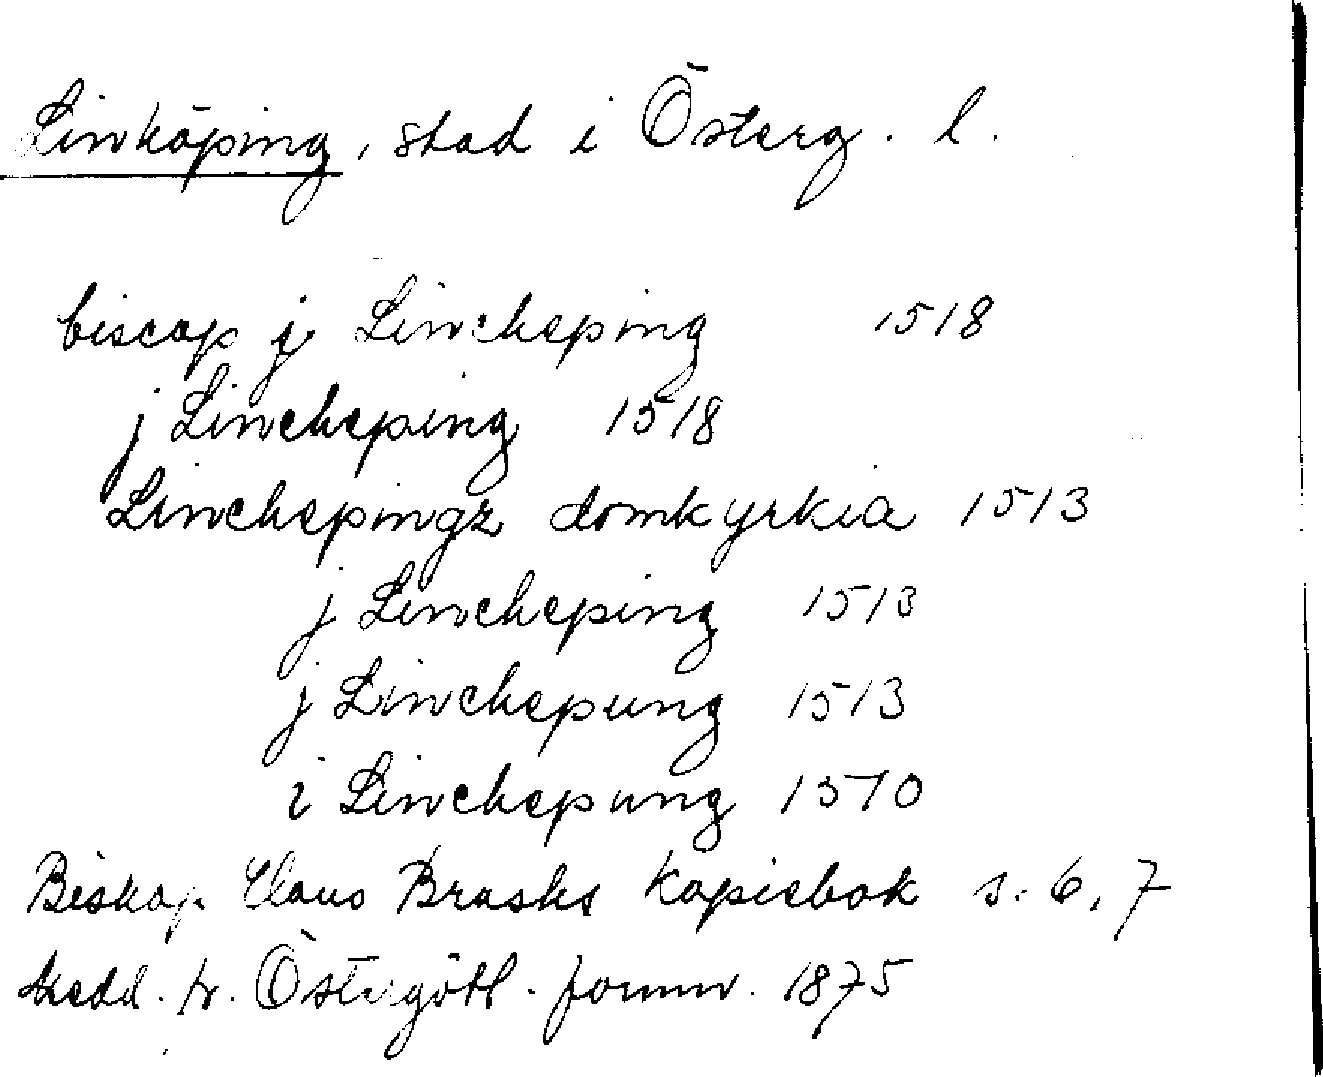 Linköping, stad i Österg. l.
biscop j Lincheping 1518
j Lincheping 1518
Linchepingz domkyrkia 1513
j Lincheping 1513
j Linchepung 1513
i Linchepung 1510
Biskop Claus Brasks Kopiebok s. 6, 7
Medd. fr. Östergötl. fornm. 1875